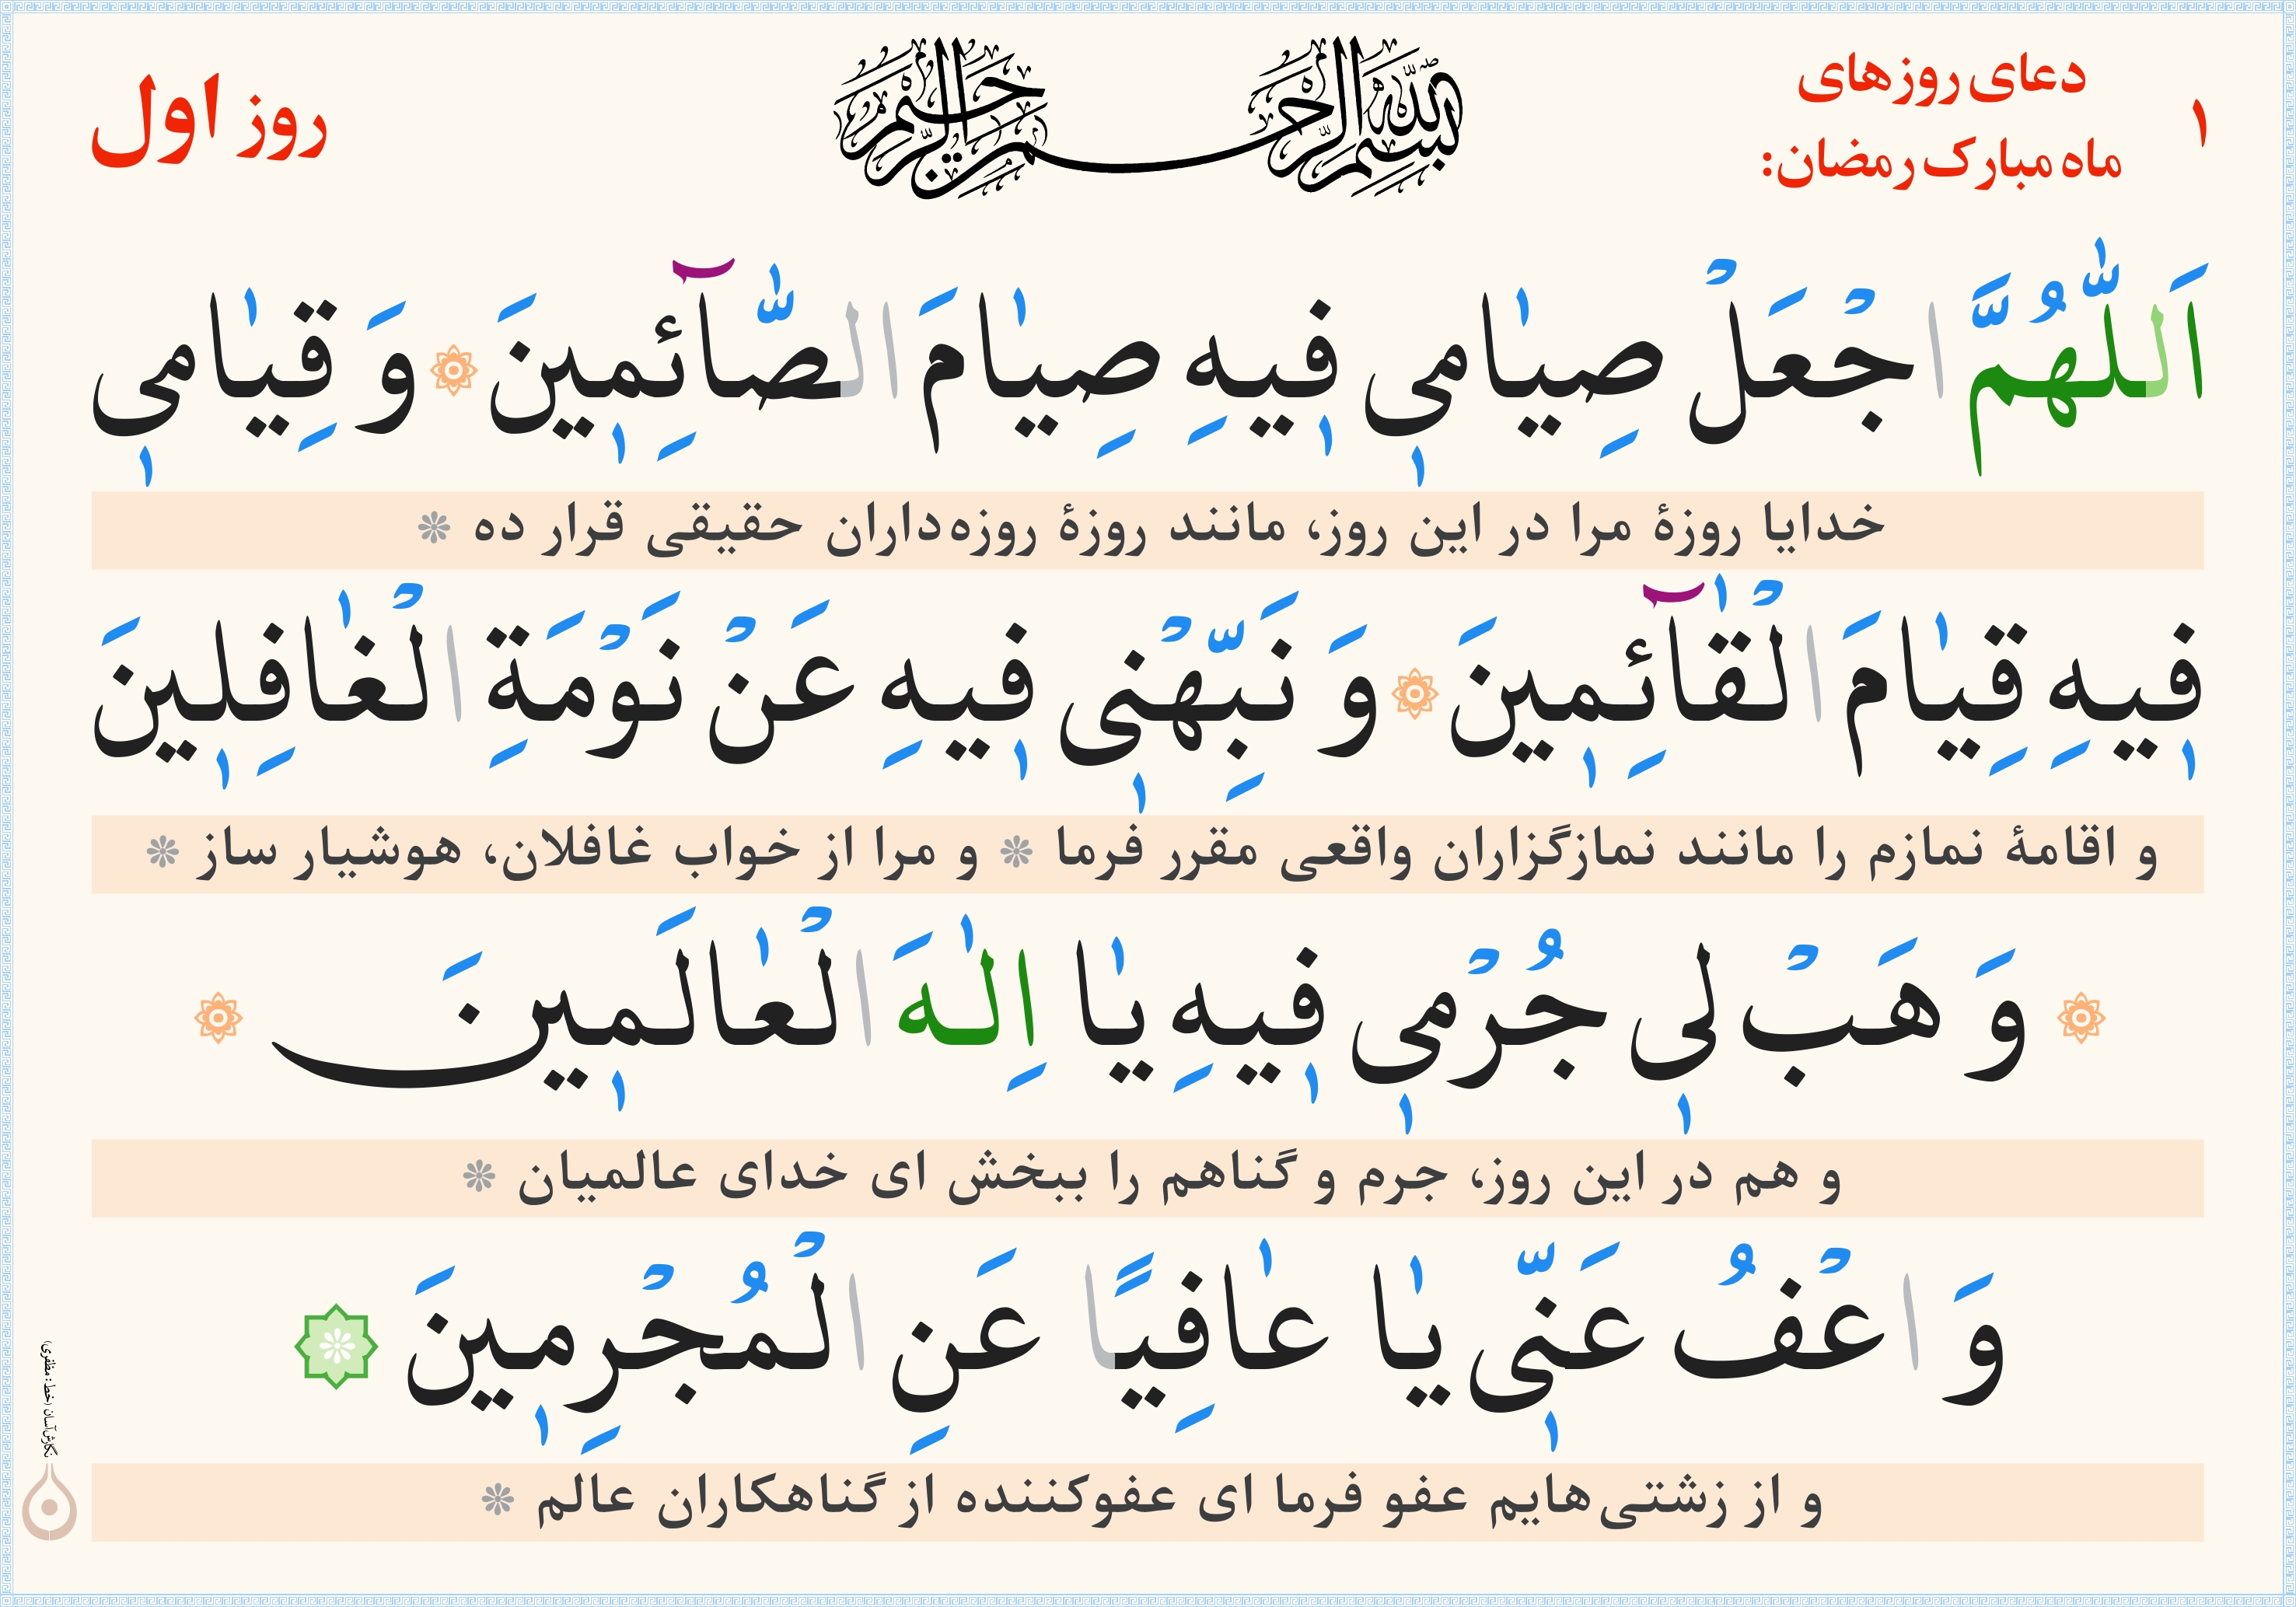 ۱
دعای روزهای
ماه مبارک رمضان:
بسم الله الرحمن الرحیم
روز اول
اَللّٰهُمَّ اجْعَلْ صِیٰامیٖ فیٖهِ صِیٰامَ الصّٰٓائِمیٖنَ وَ قِیٰامیٖ
خدایا روزهٔ مرا در این روز، مانند روزهٔ روزه‌داران حقیقی قرار ده
فیٖهِ قِیٰامَ الْقٰٓائِمیٖنَ وَ نَبِّهْنیٖ فیٖهِ عَنْ نَوْمَةِ الْغٰافِلیٖنَ
و اقامهٔ نمازم را مانند نمازگزاران واقعی مقرر فرما و مرا از خواب غافلان، هوشیار ساز
وَ هَبْ لیٖ جُرْمیٖ فیٖهِ یٰا اِلٰهَ الْعٰالَمیٖنَ
و هم در این روز، جرم و گناهم را ببخش ای خدای عالمیان
وَ اعْفُ عَنّیٖ یٰا عٰافِیًا عَنِ الْمُجْرِمیٖنَ
و از زشتی‌هایم عفو فرما ای عفوکننده از گناهکاران عالم
نگارش آسان (خط: مظفری)